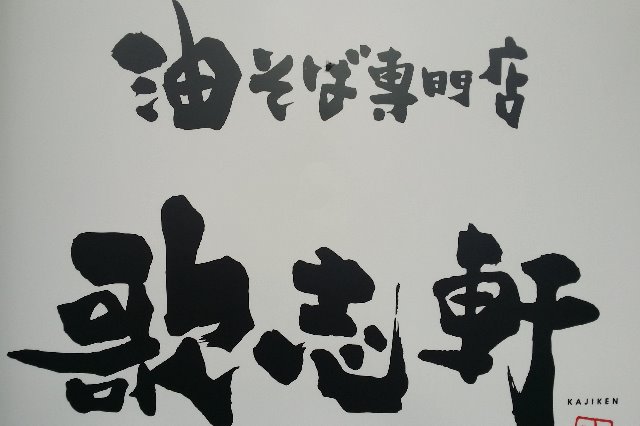 油そば専門店
歌志軒
KAJIKEN